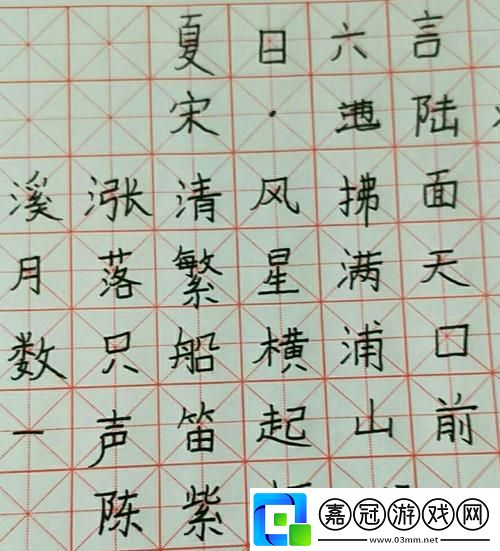 夏日六言
宋·陆
溪涨清风拂面
月落繁星满天
数只船横浦口
一声笛起山前
陈紫
嘉冠游戏网
www.03mm.net